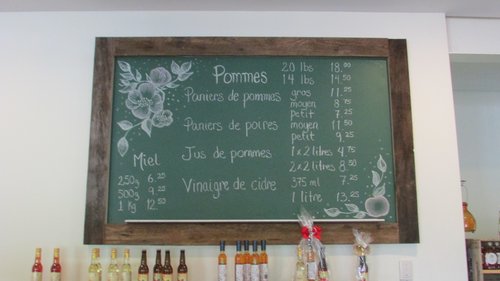 Pommes 20 lbs 18.00
14 lbs 14.50
Paniers de pommes gros 11.25
moyen 8.75
petit 7.25
Paniers de poires moyen 11.50
petit 9.25
Jus de pommes 1 x 2 litres 4.75
2 x 2 litres 8.50
Vinaigre de cidre 375 ml 7.25
1 litre 13.25
Miel
250g 6.25
500g 9.25
1 Kg 12.50